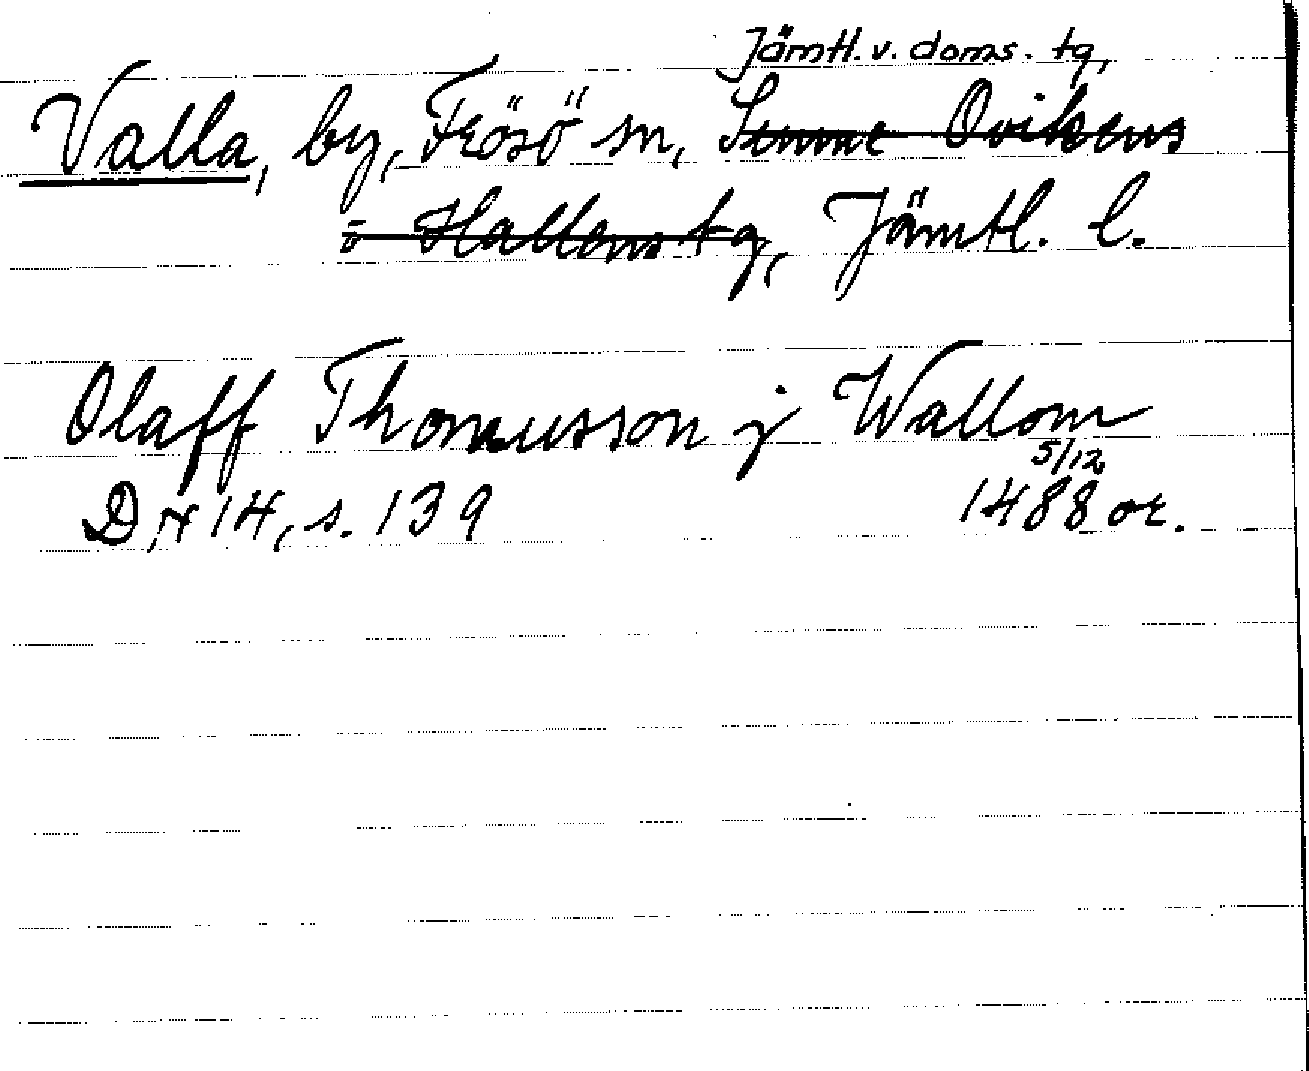 Jämtl. v. doms. tg,
Valla, by, Frösö sn, Sunne Ovikens
o Hallens tg, Jämtl. l.
Olaff Thomusson j Wallom
5/12
DN 14, s. 139 1488 or.